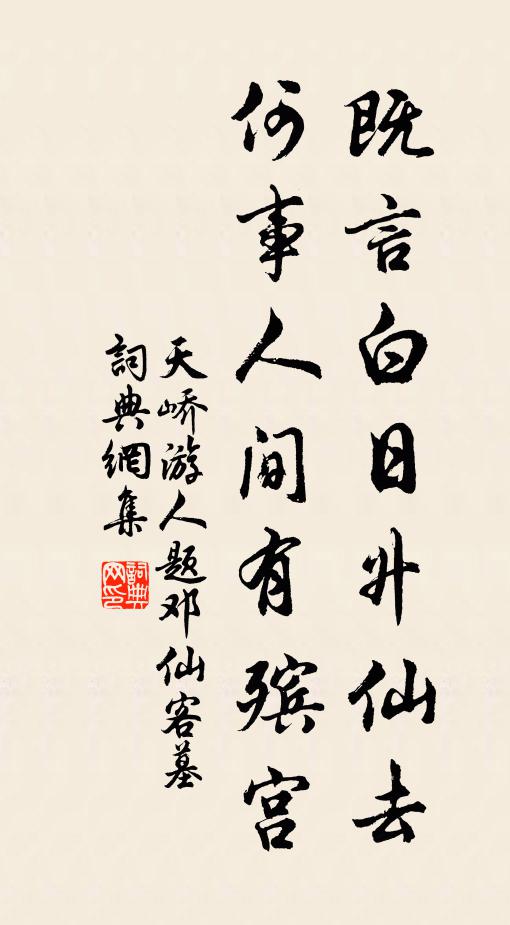 既言白日升仙去
何事人间有殡宫
天峤游人题邓仙客墓
詞典網集
詞典网印